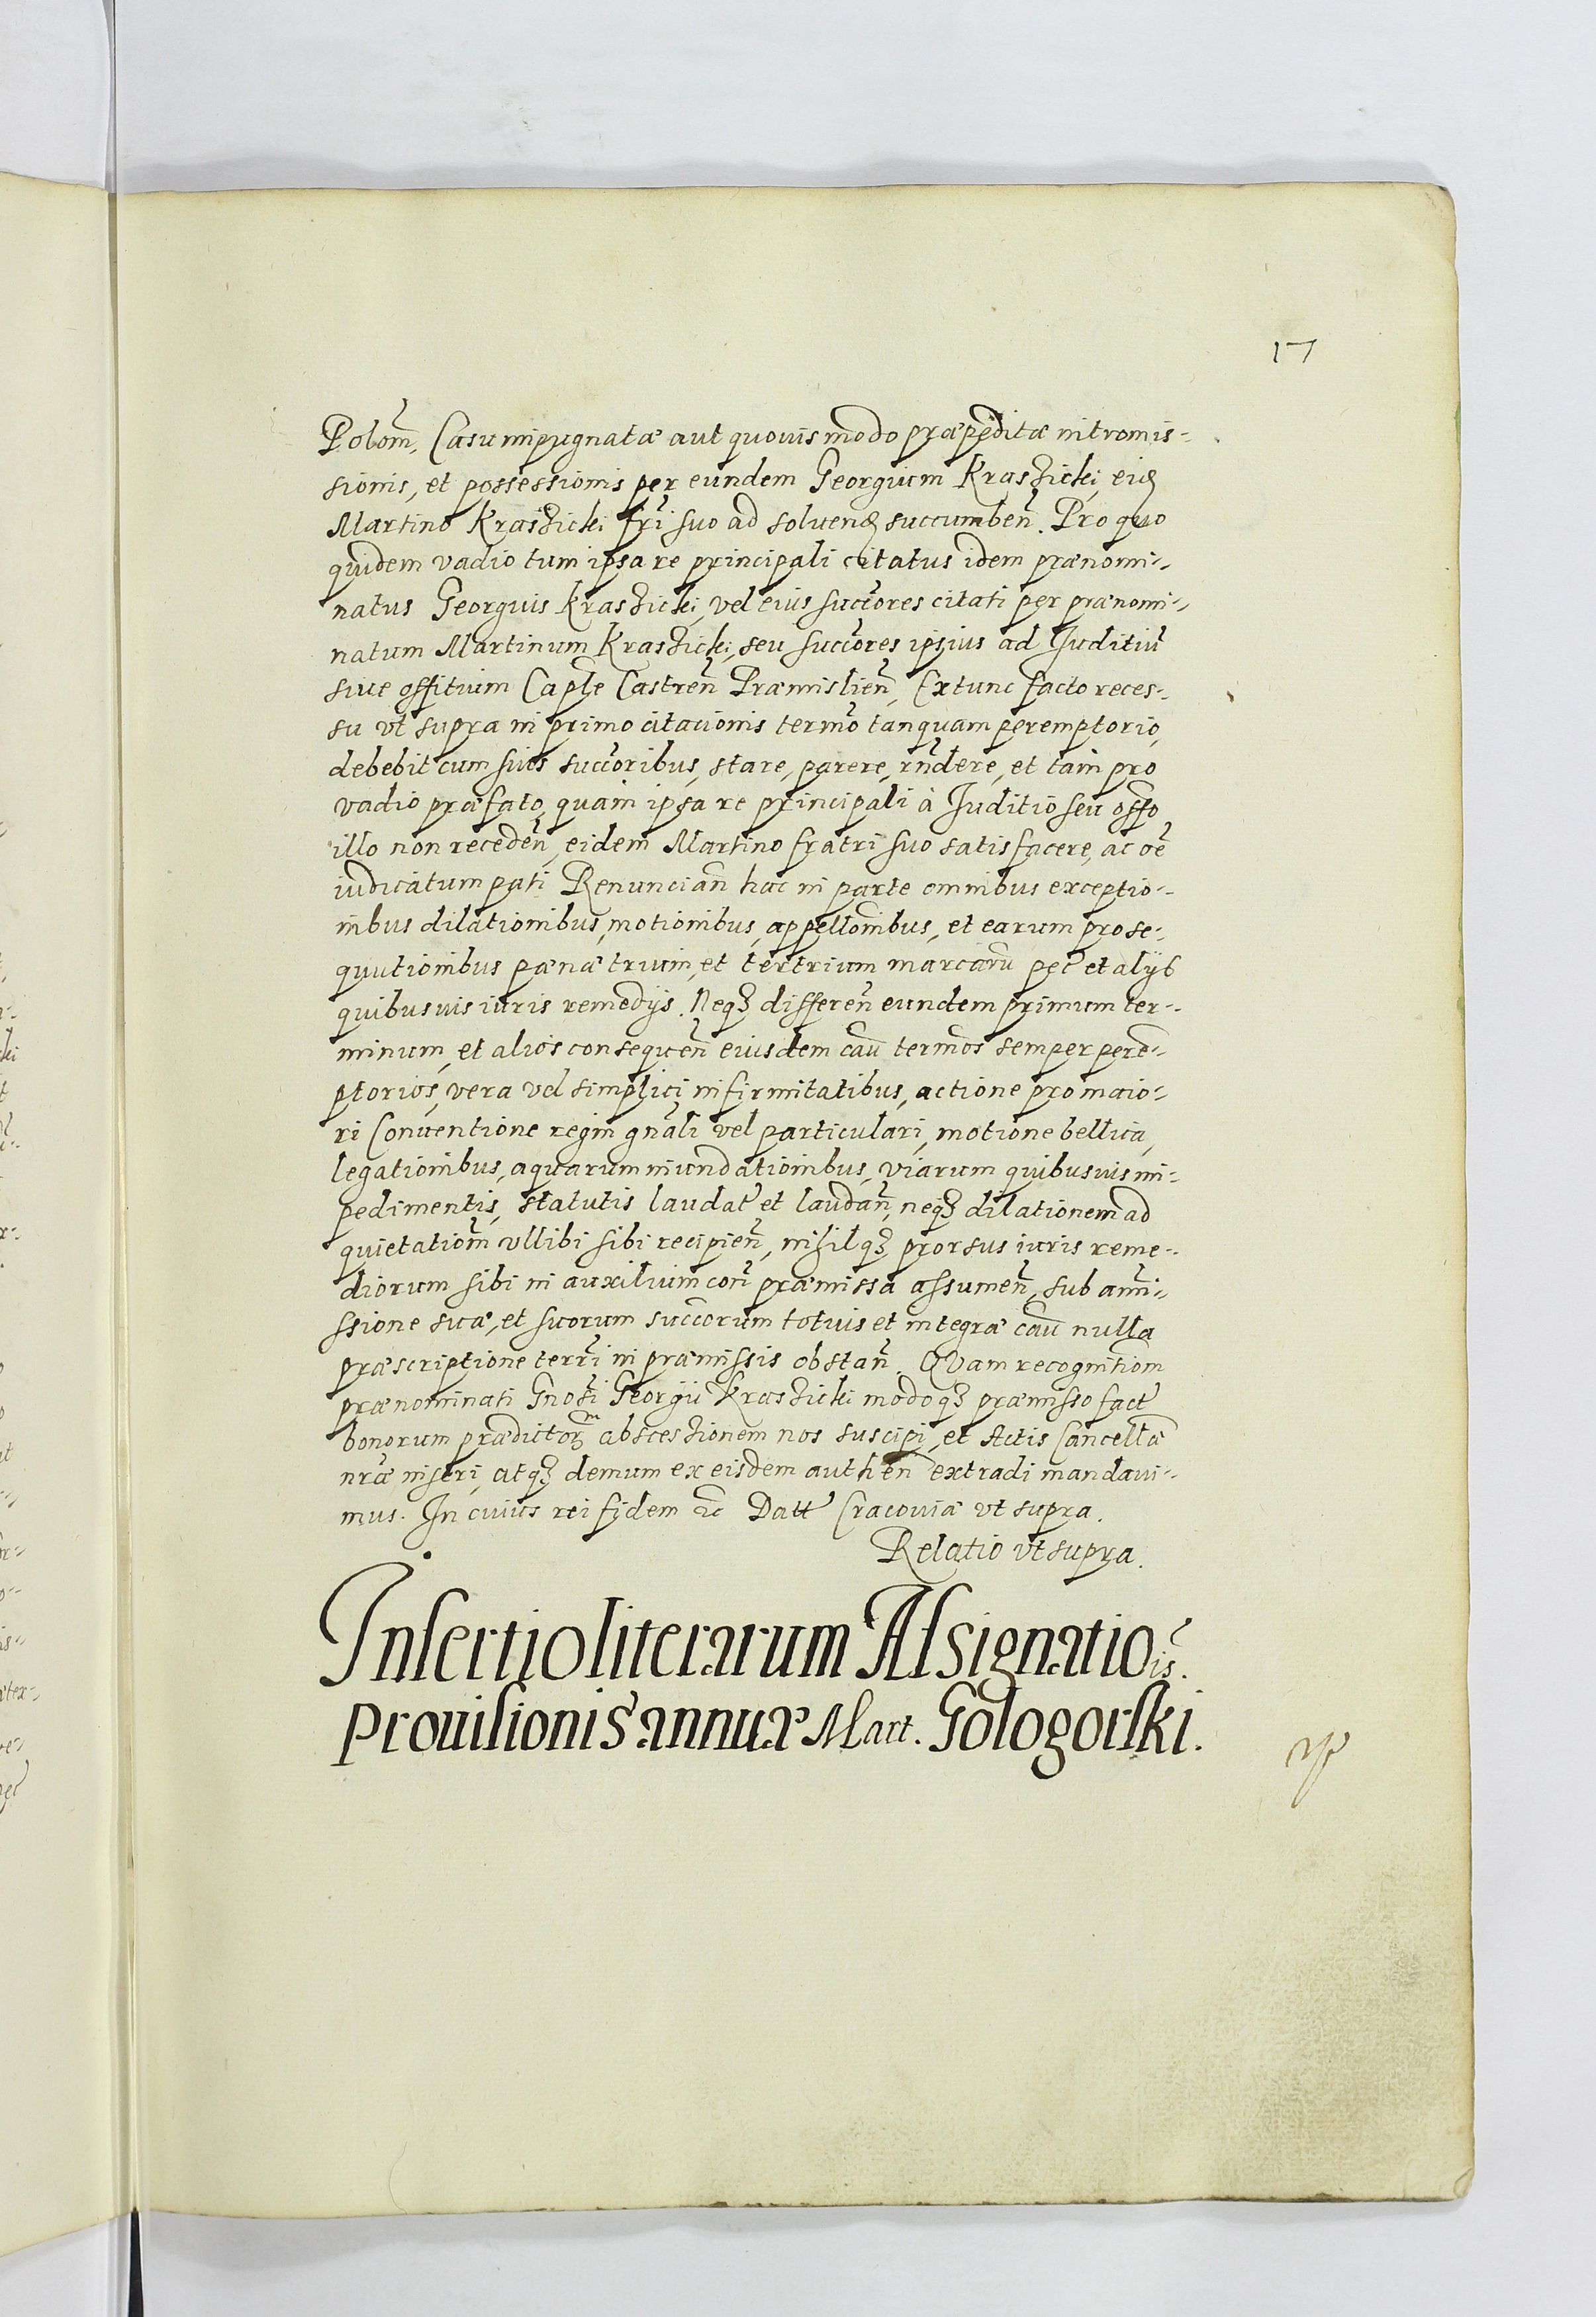 17
Polom̃, Casu impugnatæ aut quouismodo præpeditæ intromis-
sionis, et possessionis per eundem Georgium Krasȝicki, eid
Martino Krasȝicki fr̃i suo ad soluend succumbeñ. Pro quo
quidem vadio tum ipsa re principali citatus idem prænomi-
natus Georgius Krasȝicki, vel eius succ̃ores citati per prænomi-
natum Martinum Krasȝicki, seu succ̃ores ipsius ad Juditiũ
siue offitium Cap̃le Castreñ Præmislieñ, Extunc facto reces-
su vt supra in primo citacionis term̃o tanquam peremptorio,
debebit cum suis succ̃oribus, stare, parere, rñdere, et tam pro
vadio præfato, quam ipsa re principali à Juditio seu off̃o
illo non recedeñ, eidem Martino fratri suo satisfacere, ac oẽ
iudicatum pati Renunciañ hac in parte omnibus exceptio-
nibus dilationibus, motionibus, appell̃onibus, et earum prose-
qutionibus pænæ trium, et ter trium marcarũ pec̃ et alijs
quibusuis iuris remedijs. Neqȝ differeñ eundem primum ter-
minum, et alios consequeñ eiusdem cau͂ term̃os semper perẽ-
ptorios, vera vel simplici infirmitatibus, actione pro maio-
ri Conuentione regñi gñali vel particulari, motione bellica,
legationibus, aquarum inundationibus, viarum quibusuis im-
pedimentis, statutis laudat̃ et laudañ, neqȝ dilationem ad
quietatiom̃ vllibi sibi recipieñ, nihilqȝ prorsus iuris reme-
diorum sibi in auxilium coñ præmissa assumeñ, sub am̃i-
ssione suæ, et suorum succ̃orum totius et integræ cau͂ nulla
præscriptione terr̃i in præmissis obstañ. QVam recognitiom̃
prænominati Gnosi Georgii Krasȝicki modoqȝ præmisso fact̃
bonorum prædictoȝ abscessionem nos suscipi, et Actis Cancellæ̃
nr̃æ inseri, atqȝ demum ex eisdem autheñ extradi mandaui-
mus. In cuius rei fidem ꝛc̃ Datt̃ Cracouiæ vt supra.
Relatio vt supra.
Insertio literarum Assignatiois̃.
Prouisionis annuæ Mart. Gologorski.